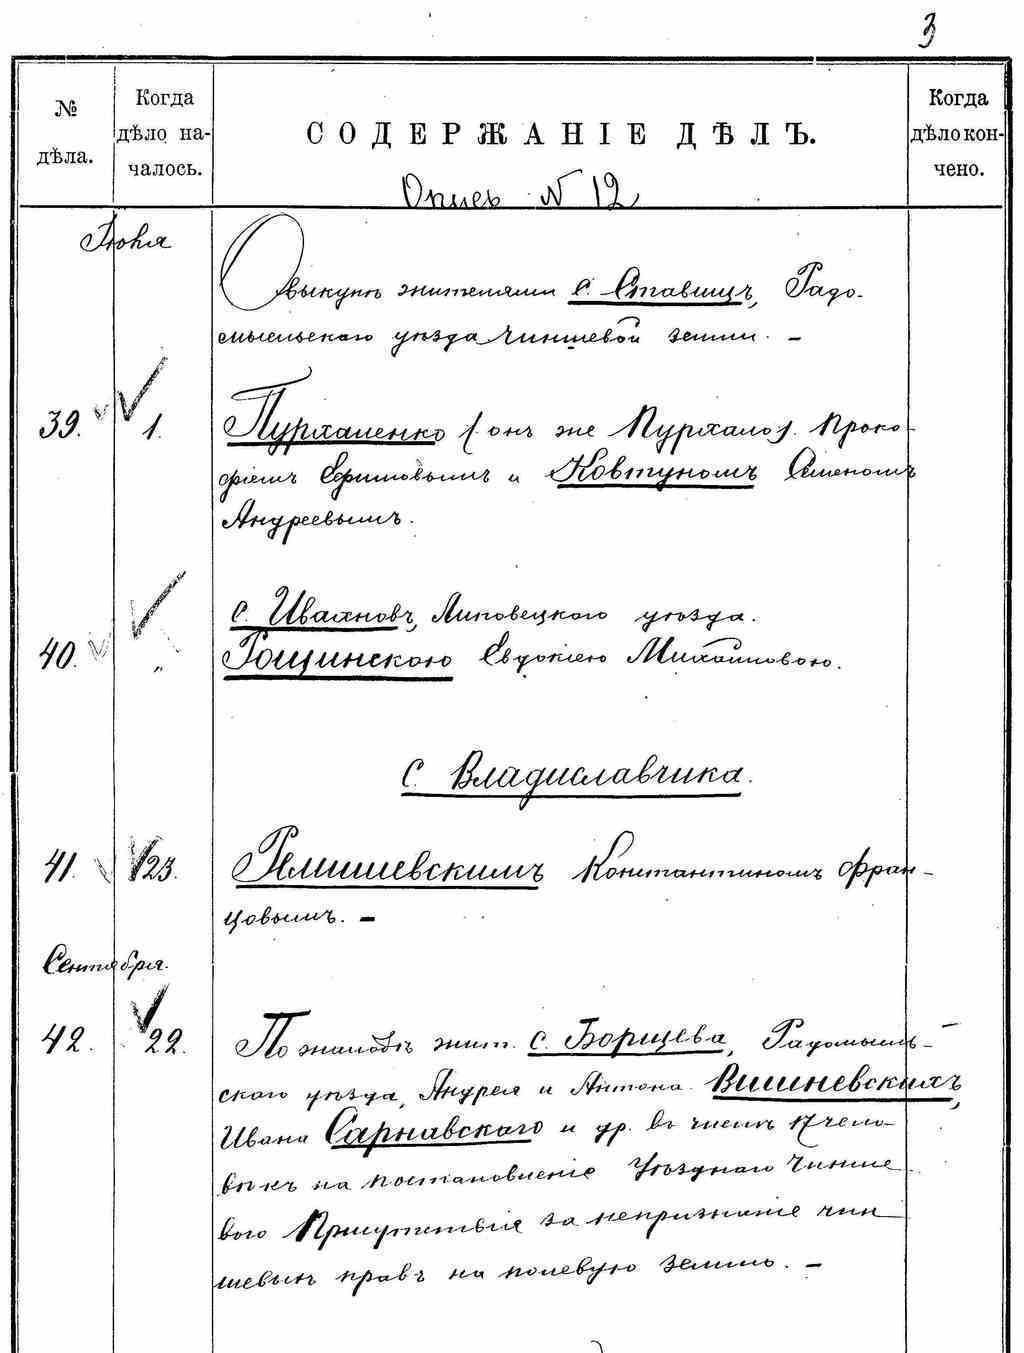 3
№ дѣла.
Когда дѣло на-
чалось.
СОДЕРЖАНІЕ ДѢЛЪ.
Когда дѣло кон-
чено.
Опись N 12
Іюня
О выкупѣ жителями с. Ставищъ, Радо-
мысльскаго уѣзда чиншевой земли. –
39. 1. Пурхаленко (онъ же Пурхало). Проко-
фіемъ Ефимовымъ и Ковтуномъ Семеномъ
Андреевымъ.
с. Ивахновъ, Липовецкаго уѣзда.
40. „ Рощинскою Евдокіею Михайловою.
с. Владиславчика.
41. 23. Ремишевскимъ Константиномъ Фран-
цовымъ. –
Сентября.
42. 22. По жалобѣ жит. с. Борщева, Радомысль-
скаго уѣзда, Андрея и Антона Вишневскихъ,
Ивана Сарнавскаго и др. въ числѣ 17 чело-
вѣкъ на постановленіе Уѣзднаго Чинше-
вого Присутствія за непризнаніе чин
шевыхъ правъ на полевую землю. –